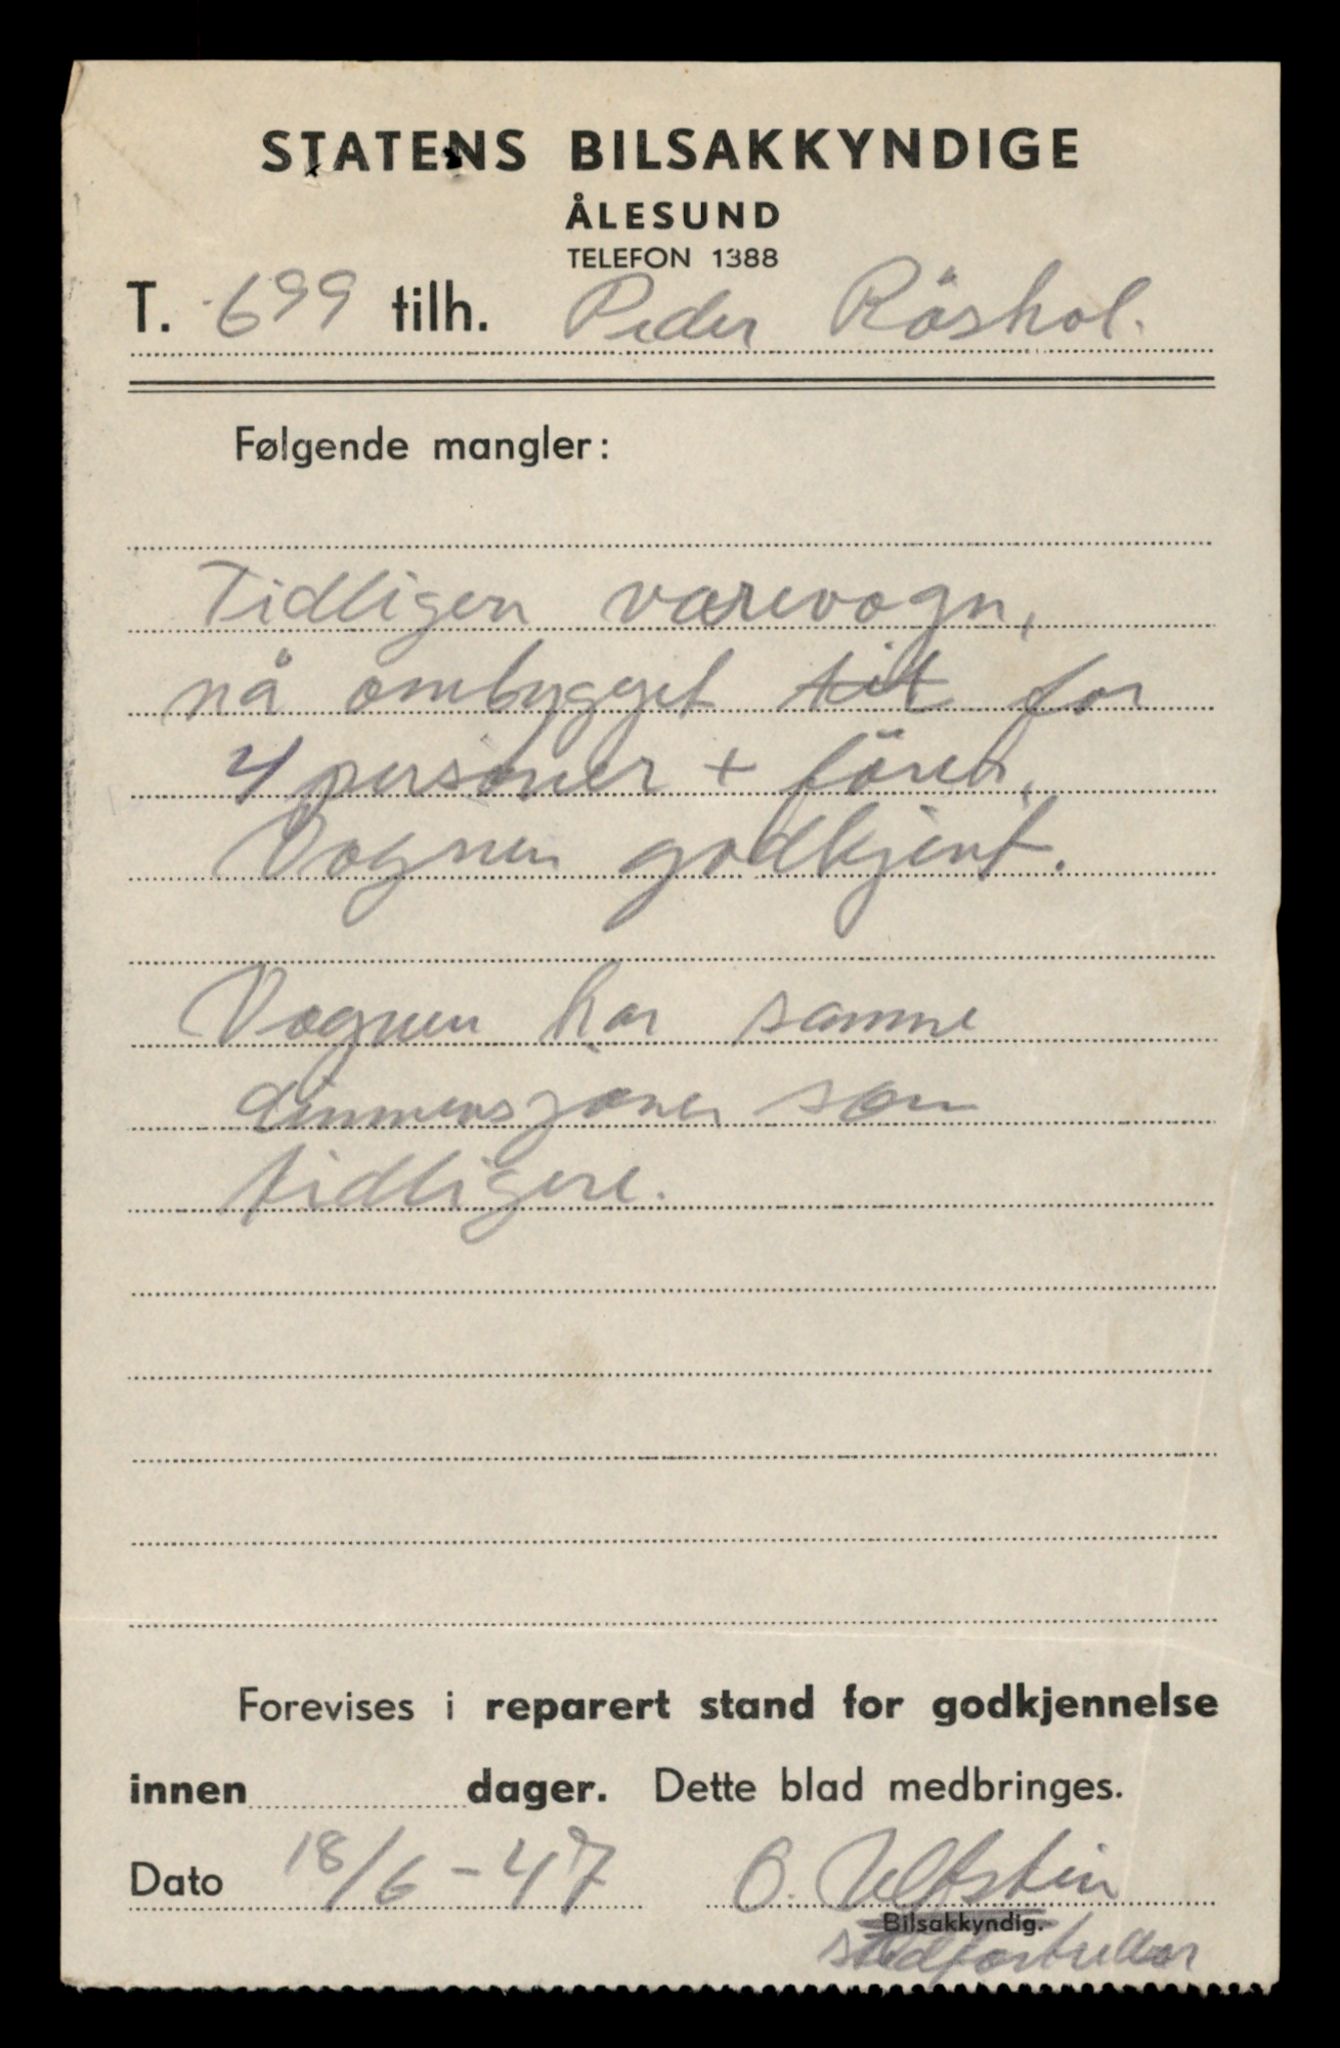 STATENS BILSAKKYNDIGE
ÅLESUND
TELEFON 1388
T. 699 tilh. Peder Röshol.
Følgende mangler:
Tidligere varevogn,
nå ombygget til for
4 personer + förer.
Vognen godkjent.
Vognen har samme
dimmensjoner som
tidligere.
Forevises i reparert stand for godkjennelse
innen dager. Dette blad medbringes.
Dato 18/6-47 O. Ulfstein
Bilsakkyndig.
stedfortreder